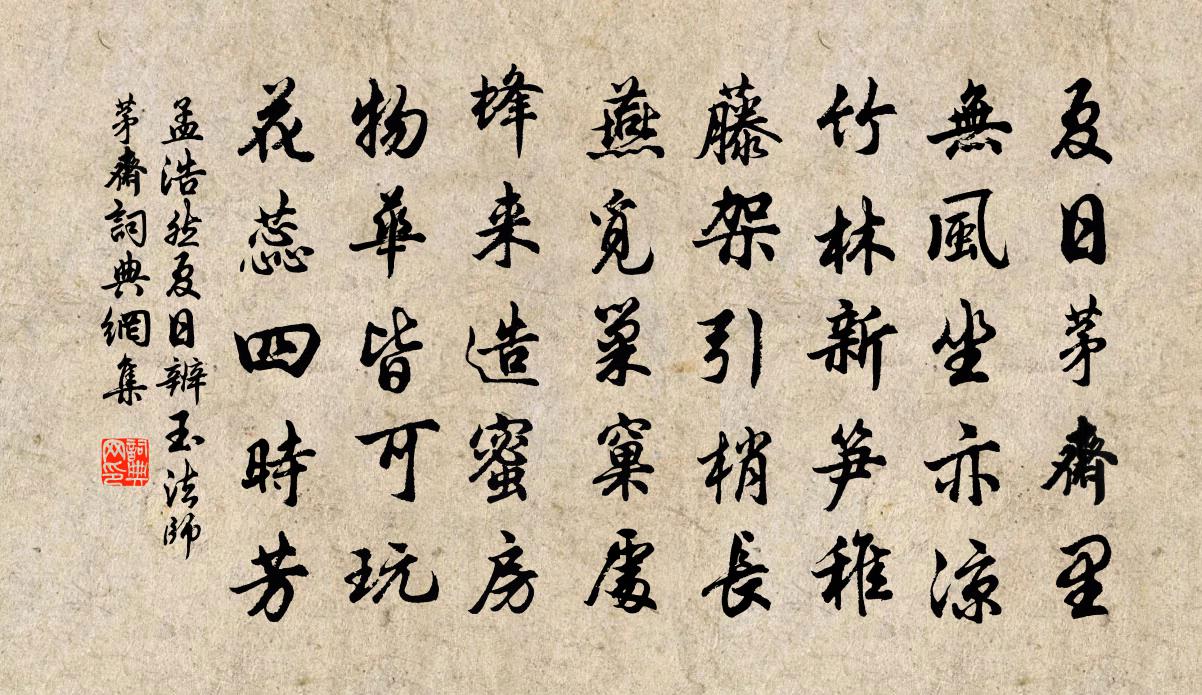 夏日茅齋里
無風坐亦凉
竹林新笋稚
藤架引梢長
燕覓巢窠處
蜂来造蜜房
物華皆可玩
花蕊四時芳
孟浩然夏日辨玉法師
茅齋詞典網集
詞典
网印